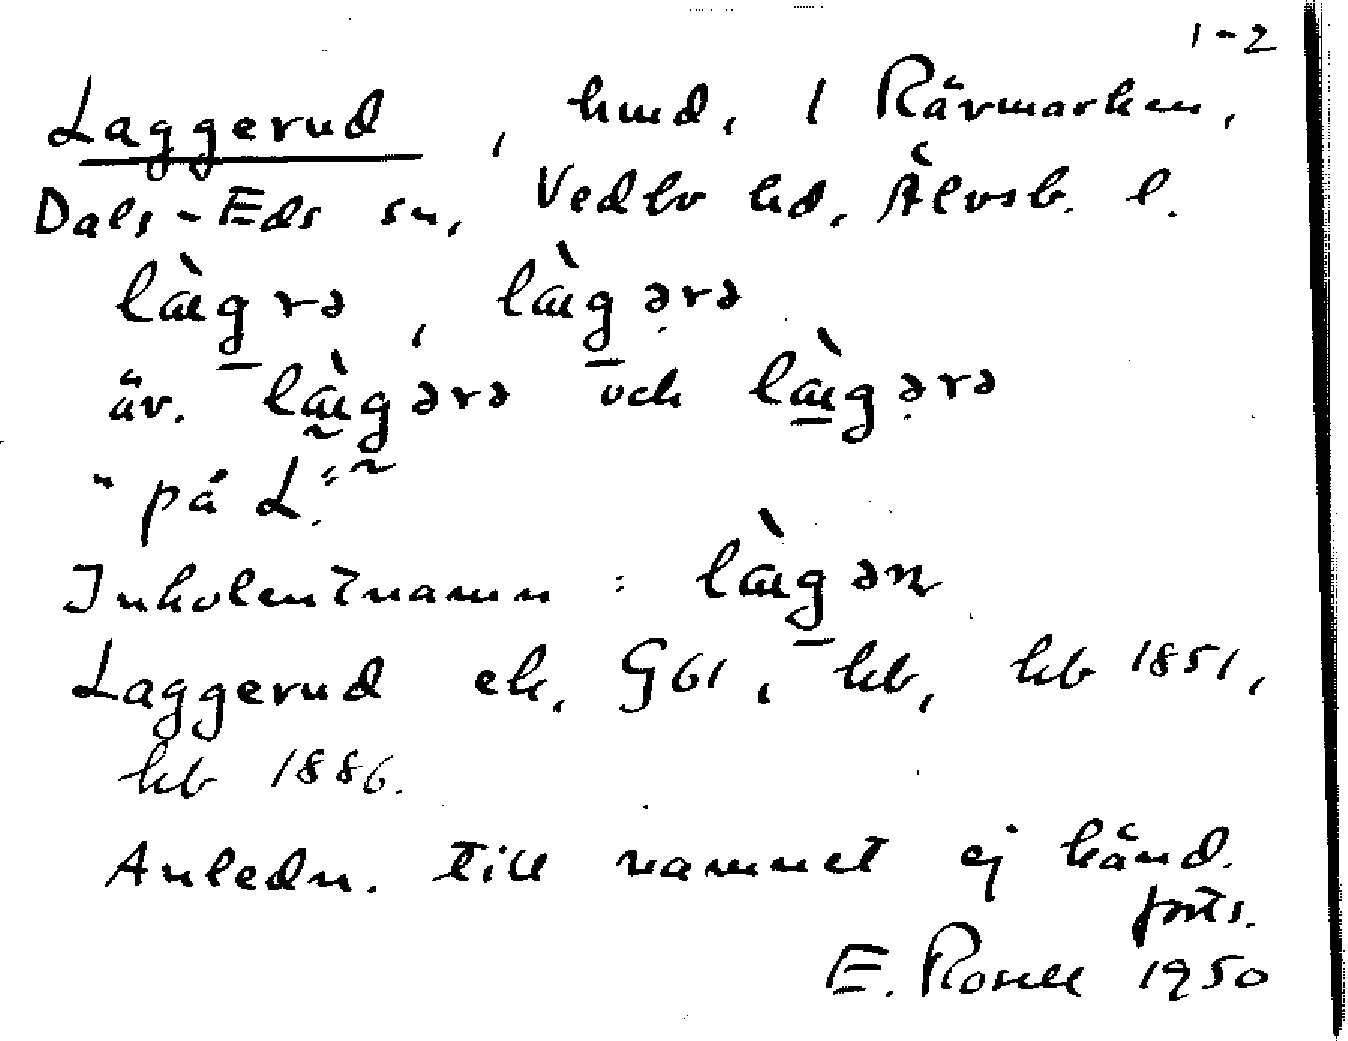 1-2
Laggerud, hmd, 1 Rävmarken,
Dals-Eds sn, Vedbo hd, Älvsb. l.
lǽg̲rə, lǽg̲ə̣rə
äv. lǽgərə och lǽgə̣rə
"på L."
Inkolentnamn: lǽg̲ən
Laggerud ek, G61, kb, kb 1851,
kb 1886.
Anledn. till namnet ej känd.
forts.
E. Rosell 1950